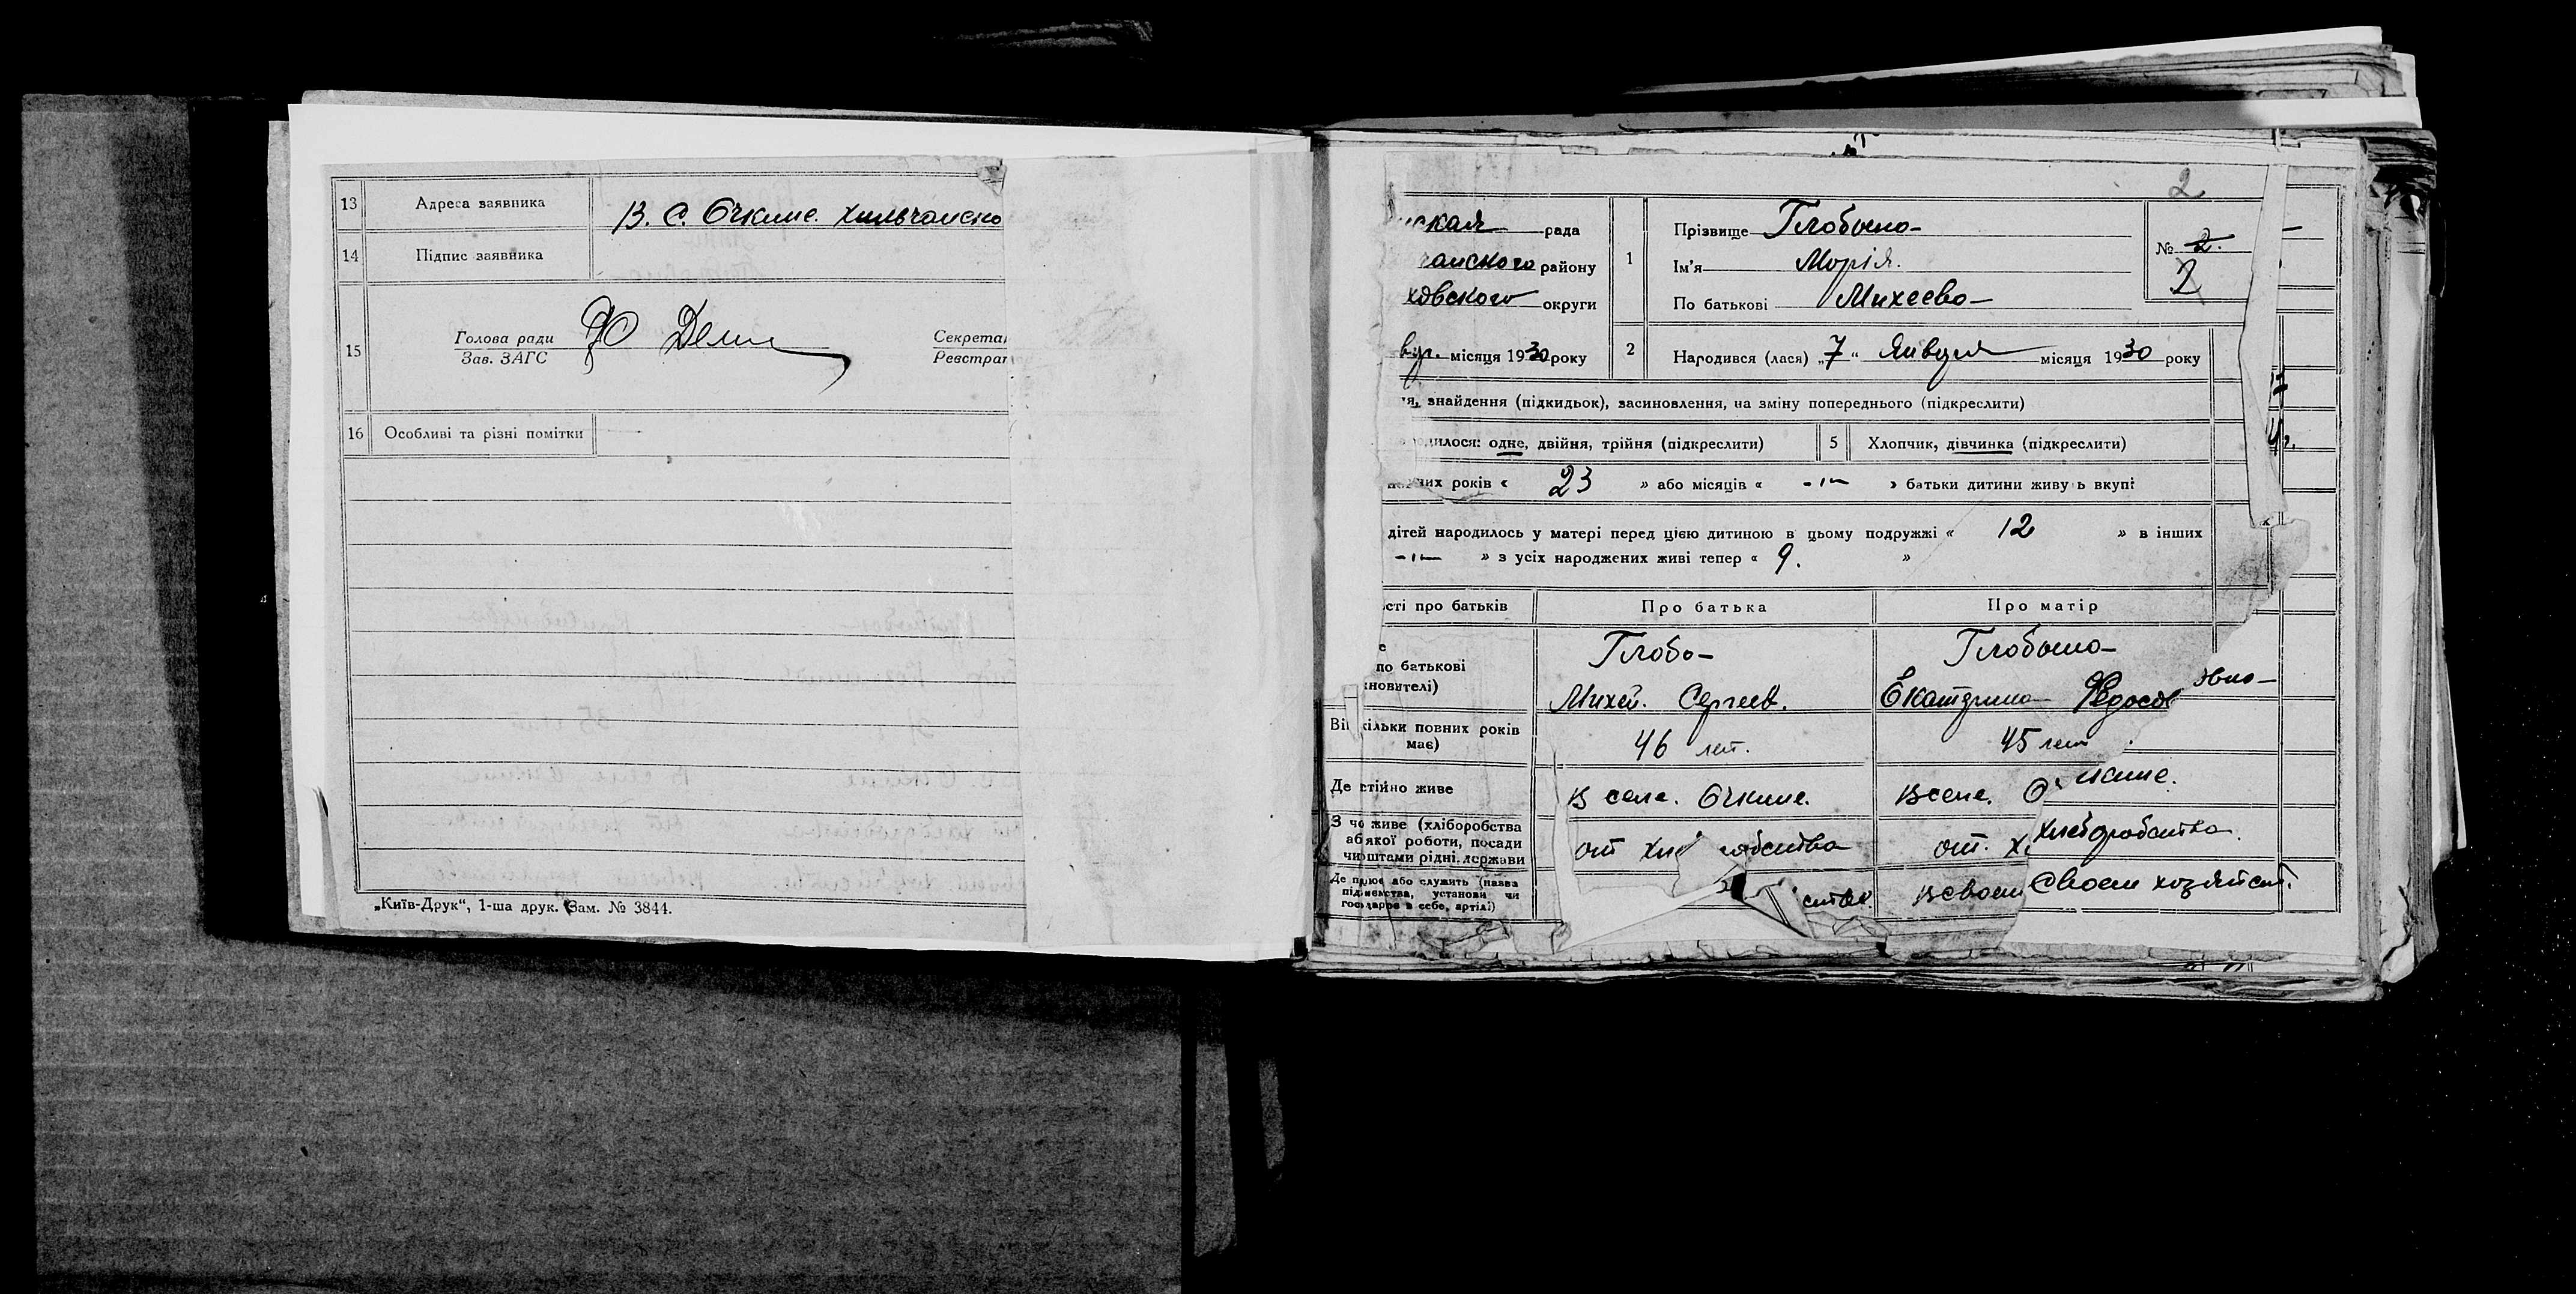 13 Адреса заявника В. С. Очкине. Хильчанско
14 Підпис заявника
15 Голова ради
Зав. ЗАГС
Секретар
Реєстрат
16 Особливі та різні помітки
„Київ-Друк“, 1-ша друк. Зам. № 3844.
2
нская рада
анского району
ховского округи
1 Прізвище Глобына
Ім'я Марія.
По батькові Михеево
№ 2.
2
вр. місяця 1930 року
2 Народився (лася) „7“ Января місяця 1930 року
я, знайдення (підкидьок), засиновлення, на зміну попереднього (підкреслити)
одилося: одне, двійня, трійня (підкреслити) 5 Хлопчик, дівчинка (підкреслити)
повних років « 23 » або місяців « -"- » батьки дитини живуть вкупі
дітей народилось у матері перед цією дитиною в цьому подружжі « 12 » в інших
-"- » з усіх народжених живі тепер « 9. »
сті про батьків Про батька Про матір
е
по батькові
новителі)
Глоба
Михей. Сергеев.
Глобына
Екатерина Федосовна
Вік скільки повних років
має)
46 лет. 45 лет
Де стійно живе В селе. Очкине. В селе. Очкине.
З чо живе (хліборобства
аб якої роботи, посади
чи штами рідні, держави
от хл робства от. х хлебробства.
Де працює або служить (назва
підприємства, установи чи
господарює в себе, артілі)
ства. в своем Своем хозяйст.